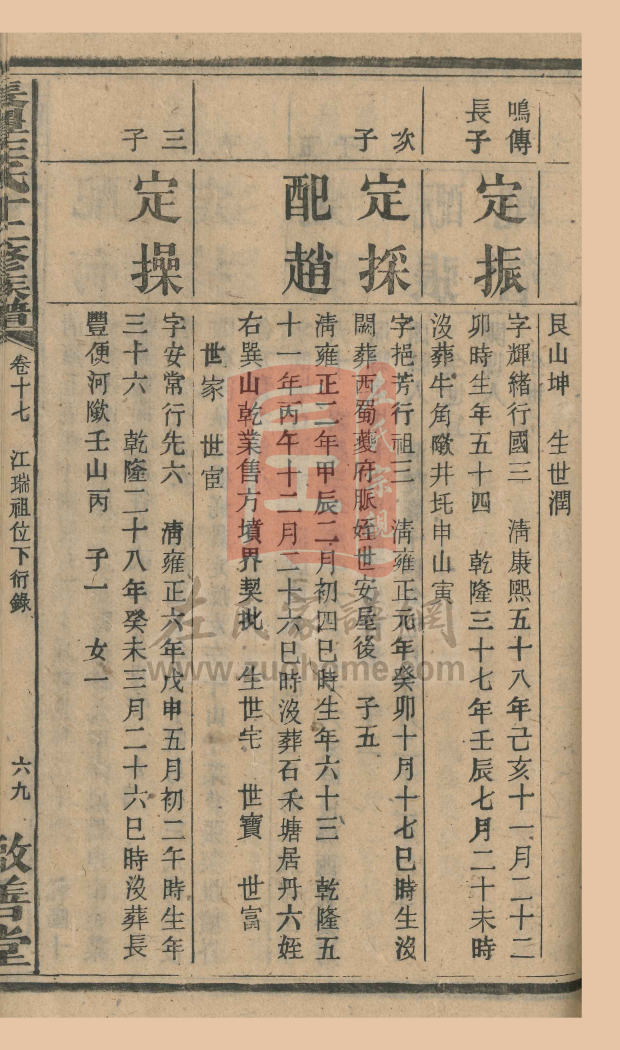 艮山坤 生世潤
鳴傳
長子
定振
字輝緒行國三 清康熙五十八年己亥十一月二十二
卯時生年五十四 乾隆三十七年壬辰七月二十未時
沒葬牛角墩井圫申山寅
次
子
定採
字挹芳行祖三 清雍正元年癸卯十月十七巳時生沒
闕葬西蜀夔府脈姪世安屋後 子五
配趙
清雍正二年甲辰二月初四巳時生年六十三 乾隆五
十一年丙午十二月二十六巳時沒葬石禾塘居丹六姪
右巽山乾業售方墳界契批 生世宅 世寶 世富
世家 世宦
三
子
定操
字安常行先六 清雍正六年戊申五月初二午時生年
三十六 乾隆二十八年癸未三月二十六巳時沒葬長
豐便河墩壬山丙 子一 女一
氏十二修族譜
卷十七 江瑞祖位下衍錄
六九
敬善堂
左氏宗親
左氏家譜網
www.zuohome.com